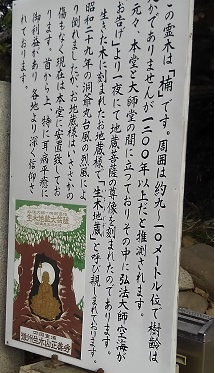 この霊木は「楠」です。周囲は約九~一〇メートル位で樹齢は
かでありませんが一二〇〇年以上だと推測されます。
元々、本堂と大師堂の間に立っており、その中に弘法大師空海が
お告げ」より一夜にて地蔵菩薩の尊像を刻まれたのであります。
生きた木に刻まれたお地蔵様で「生木地蔵」と呼び親しまれております。
昭和二十九年の洞爺丸台風の烈風によ
り倒れましたがお地蔵様は、さいわい
傷もなく現在は本堂に安置致しており
ます。首から上、特に耳病平癒に
御利益があり各地より深く信仰さ
れております。
生木地蔵大菩薩
正善寺